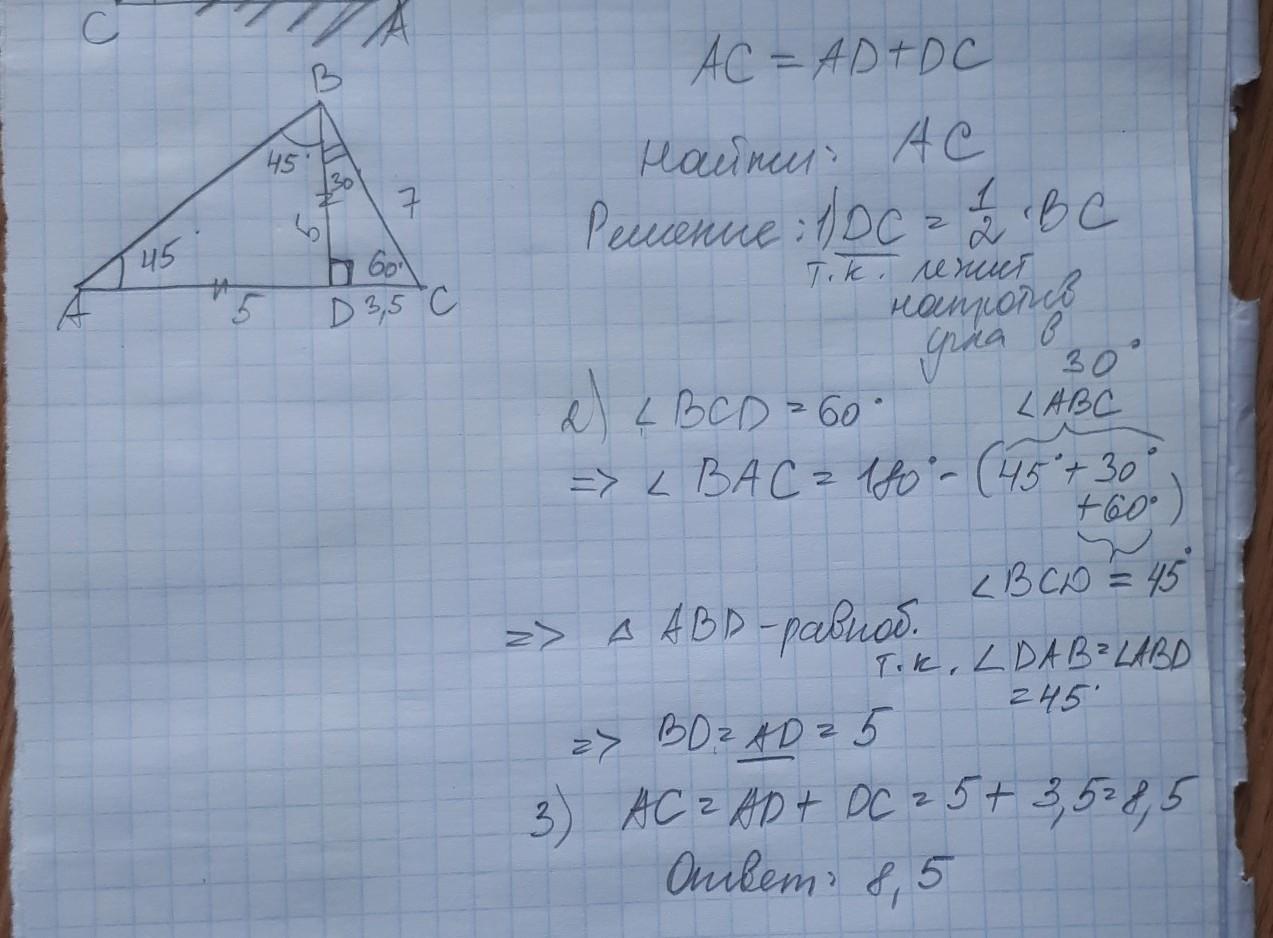 C A
B
45°
30
7
5
45°
60°
A 5 D 3,5 C
AC = AD + DC
Найти: AC
Решение: 1) DC = 1/2 · BC
т.к. лежит
напротив
угла в
30°
2) ∠BCD = 60°
∠ABC
=> ∠BAC = 180° - (45° + 30°
+ 60°)
∠BCD = 45°
=> △ ABD - равноб.
т.к. ∠DAB = ∠ABD
= 45°
=> BD = AD = 5
3) AC = AD + DC = 5 + 3,5 = 8,5
Ответ: 8,5